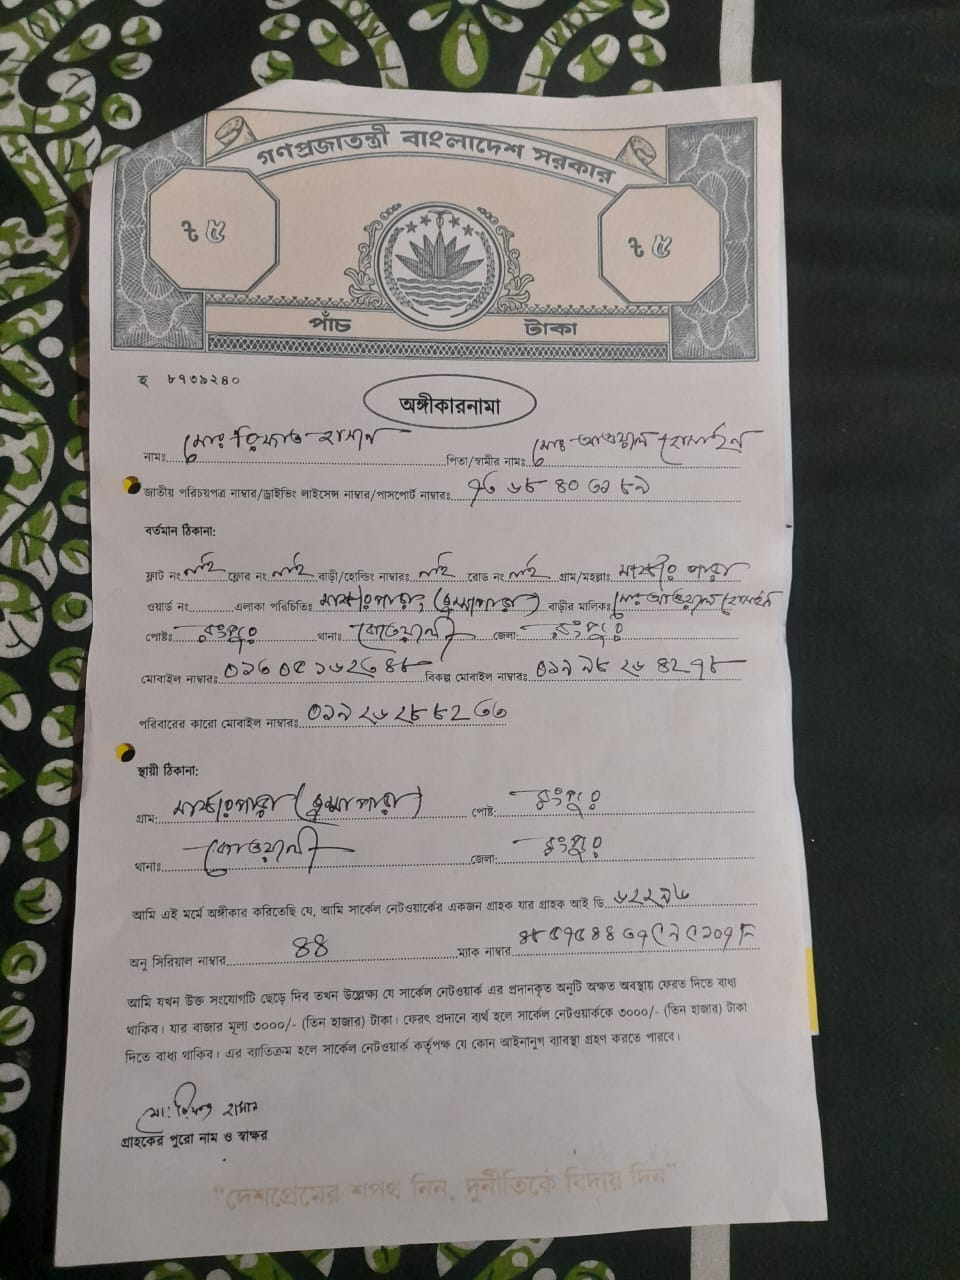 গণপ্রজাতন্ত্রী বাংলাদেশ সরকার
৳ ৫ ৳ ৫
পাঁচ টাকা
হ ৮৭৩৯২৪০
অঙ্গীকারনামা
নামঃ মোঃ রিফাত হাসান পিতা/স্বামীর নামঃ মোঃ আওয়াল হোসাইন
জাতীয় পরিচয়পত্র নাম্বার/ড্রাইভিং লাইসেন্স নাম্বার/পাসপোর্ট নাম্বারঃ
বর্তমান ঠিকানা:
ফ্লাট নং নাই ফ্লোর নং নাই বাড়ী/হোল্ডিং নাম্বারঃ নাই রোড নং নাই গ্রাম/মহল্লাঃ পাড়া
ওয়ার্ড নং এলাকা পরিচিতিঃ বাড়ীর মালিকঃ মোঃ আওয়াল হোসাইন
পোষ্টঃ রংপুর থানাঃ কোতয়ালী জেলা: রংপুর
মোবাইল নাম্বারঃ বিকল্প মোবাইল নাম্বারঃ ০১৭৯৮২৬৪২৭৮
পরিবারের কারো মোবাইল নাম্বারঃ
স্থায়ী ঠিকানা:
গ্রাম: পোষ্ট: রংপুর
থানাঃ কোতয়ালী জেলা: রংপুর
আমি এই মর্মে অঙ্গীকার করিতেছি যে, আমি সার্কেল নেটওয়ার্কের একজন গ্রাহক যার গ্রাহক আই ডি ৬২২৯৬
অনু সিরিয়াল নাম্বার 44 ম্যাক নাম্বার
আমি যখন উক্ত সংযোগটি ছেড়ে দিব তখন উল্লেক্ষ্য যে সার্কেল নেটওয়ার্ক এর প্রদানকৃত অনুটি অক্ষত অবস্থায় ফেরত দিতে বাধ্য
থাকিব। যার বাজার মূল্য ৩০০০/- (তিন হাজার) টাকা। ফেরৎ প্রদানে ব্যর্থ হলে সার্কেল নেটওয়ার্ককে ৩০০০/- (তিন হাজার) টাকা
দিতে বাধ্য থাকিব। এর ব্যাতিক্রম হলে সার্কেল নেটওয়ার্ক কর্তৃপক্ষ যে কোন আইনানুগ ব্যাবস্থা গ্রহণ করতে পারবে।
মো: রিফাত হাসান
গ্রাহকের পুরো নাম ও স্বাক্ষর
"দেশপ্রেমের শপথ নিন, দুর্নীতিকে বিদায় দিন"